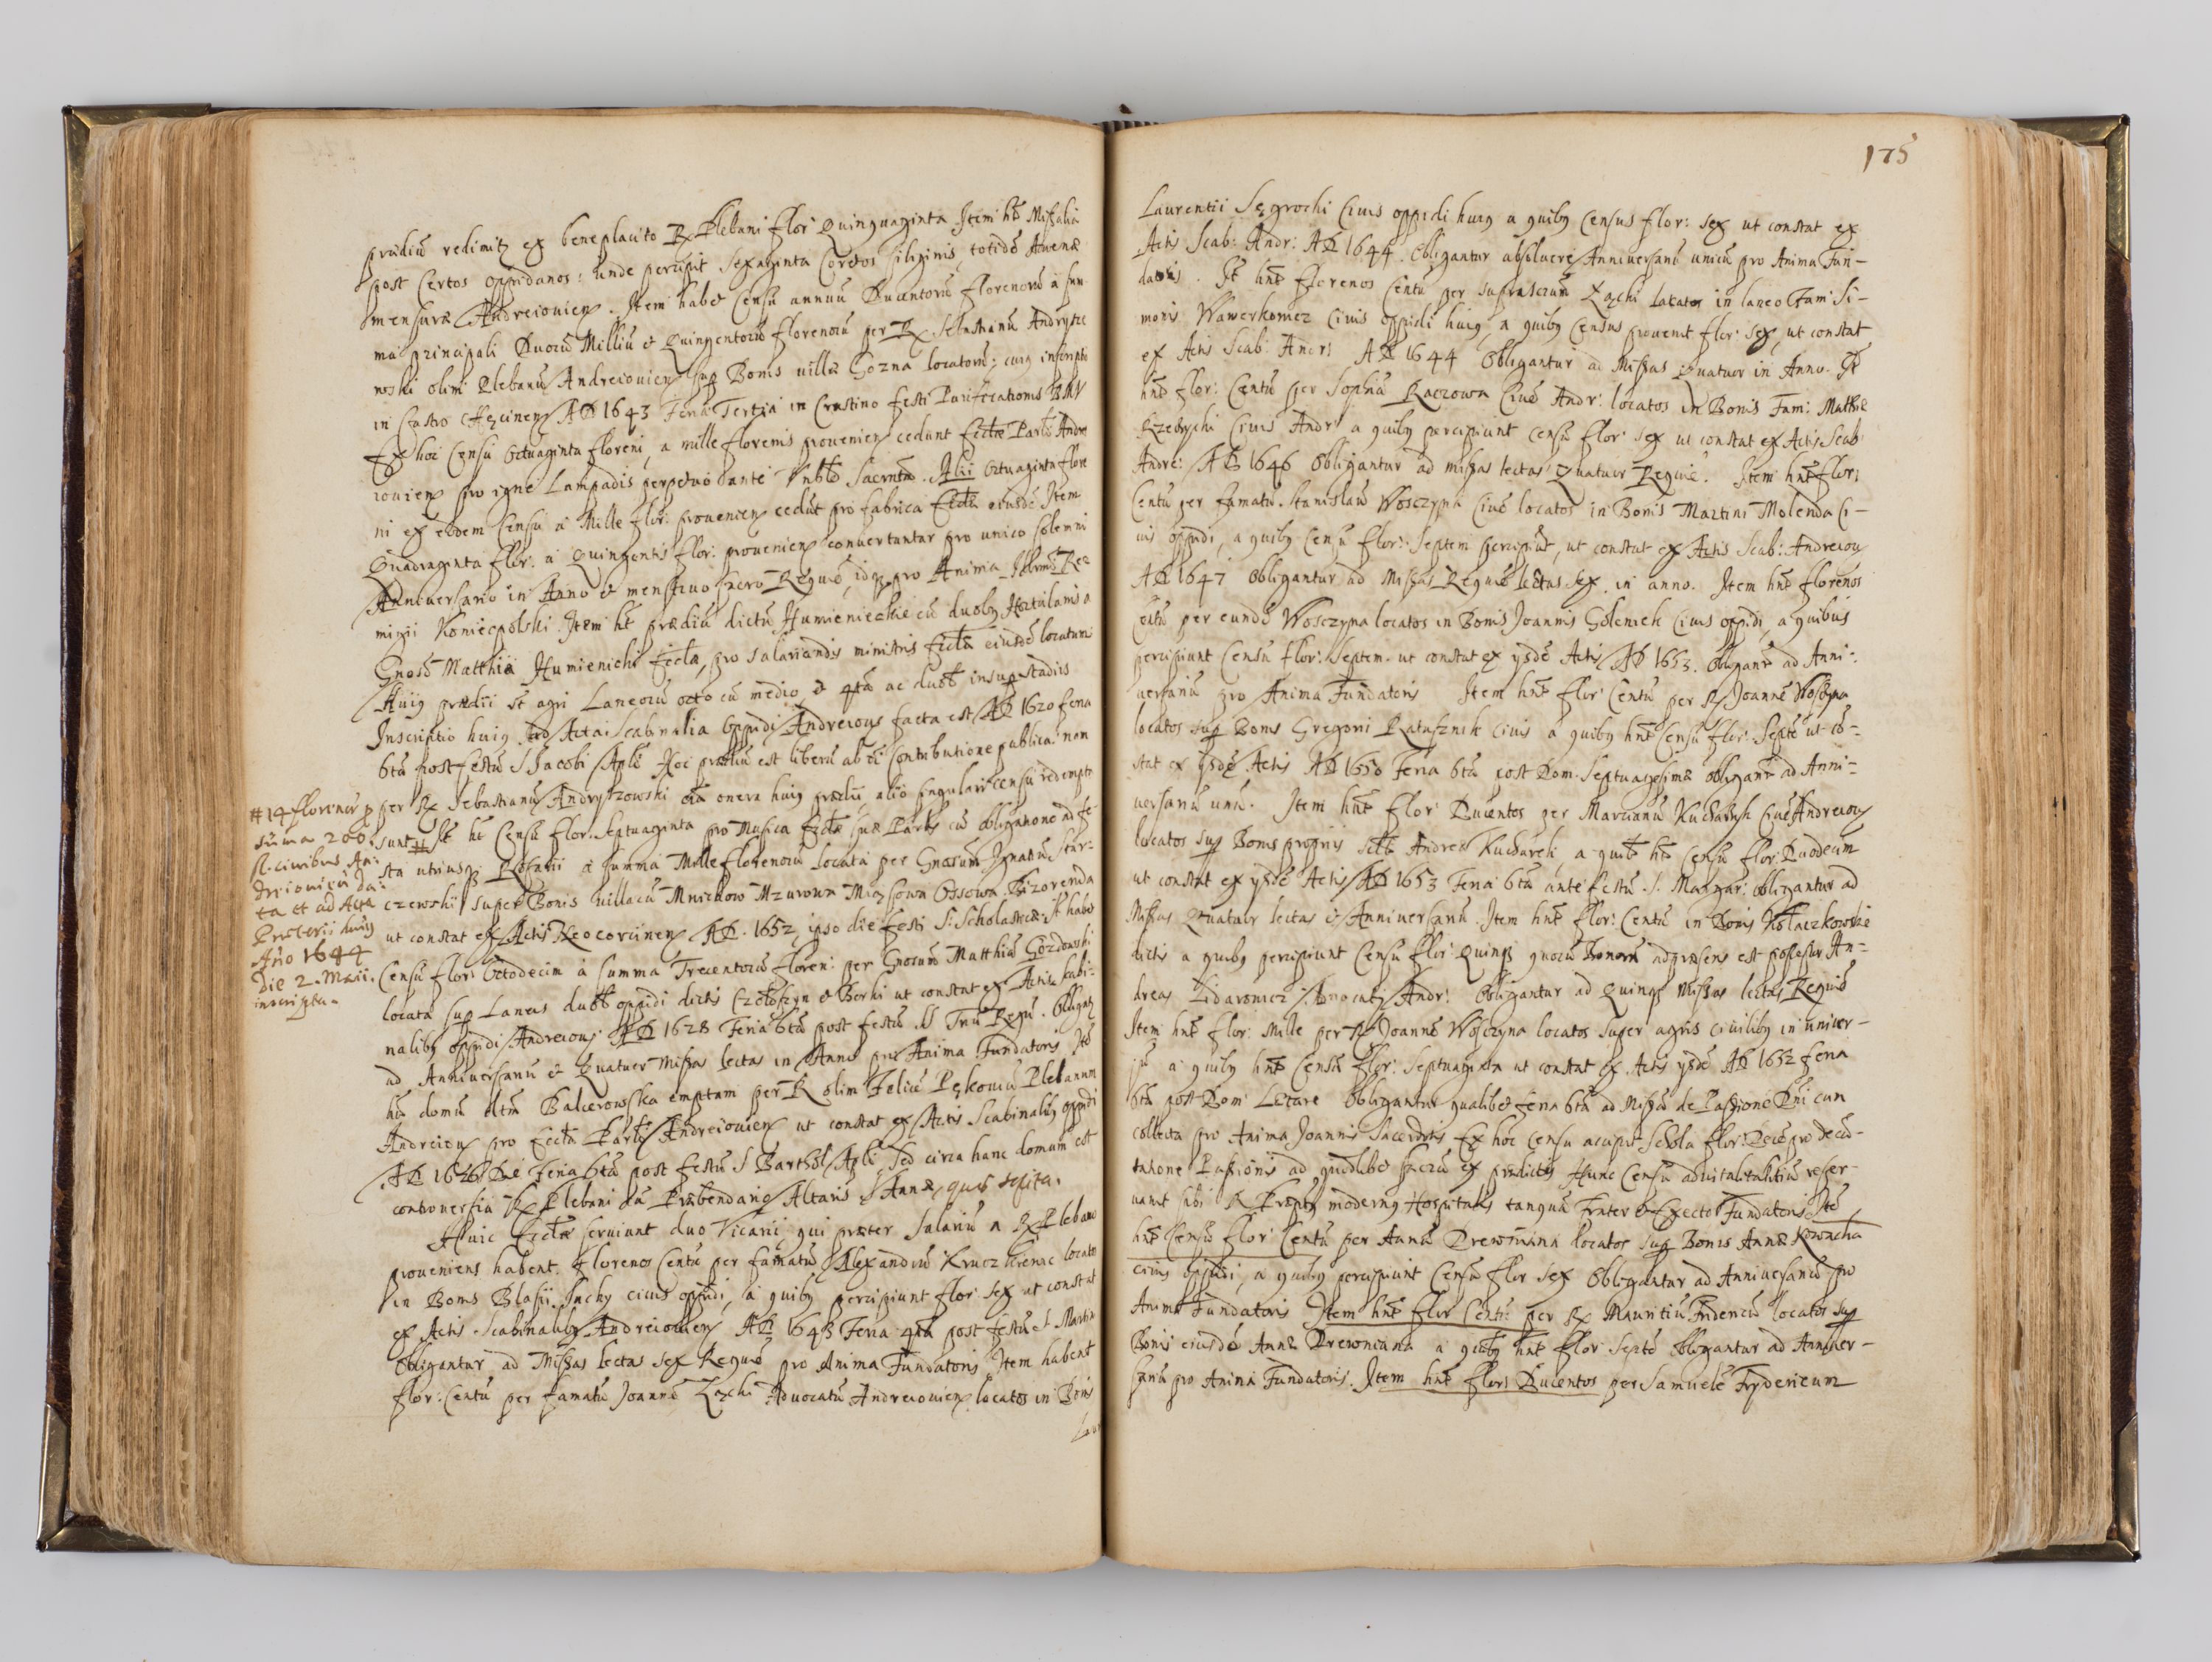 prædiũ redimit ex beneplacito R. Plebani flor: Quinquaginta Item ht Missalia
post Certos oppidanos: unde percipit Sexaginta Coretos siliginis, totidẽ Auenæ
mensuræ Andreiouien. Item habet Censũ annuũ Ducentorũ florenorũ à sum
ma principali Duorũ Milliũ et Quingentorũ florenorũ per R. Sebastianũ Andrysze
woski olim Plebanũ Andreiouien sup Bonis uillæ Gozna locatorũ; cuiq inscriptio
in Castro Chęcinen AD 1643 Feria Tertia in Crastino festi Purificationis BMV
Ex hoc Censu Octuaginta floreni, a mille florenis prouenien cedunt Ecclæ Parlis Andre
iouien pro igne Lampadis perpetuò ante Vnblẽ Sacrmtũ. Alii Octuaginta flore
ni ex eodem Censu à Mille flor: prouenien cedũt pro fabrica Ecclæ eiusdẽ Item
Quadraginta flor: à Quingentis flor: prouenien conuertuntur pro unico solemni
Anniuersario in Anno et menstruo sacro Requiẽ, idq pro Anima
minii Koniecpolski. Item ht prædiũ dictũ Humienieckie cũ duobq Hortulanis a
Gnoso Matthia Humienicki Ecclæ, pro salariandis ministris Ecclæ eiusdẽ locatum
Huiq prædii st agri Laneorũ octo cũ medio et qrta ac duob insup stadiis
Inscriptio huiq ad Acta Scabinalia Oppidi Andreiouien facta est AD 1620 feria
6ta post festũ S Jacobi Apli Hoc prædiũ est liberũ ab oĩ Contributione publica: nam
per R. Sebastianũ Andryszowski oĩa onera huiq prædii, alio singulari censu redempta
sunt # Itẽ ht Censũ flor: Septuaginta pro Musica Ecclæ suæ Parlis cũ obligatione ad fe
sta utriusq Rosarii à summa Mille florenorũ locata per Gnosum Ignatiũ Star-
czewski super Bonis uillarũ Mnichow Mzurowa Miąsowa Ossowa Brzozowa
ut constat ex Actis Neocorcinen AD. 1652, ipso die festi S. Scholasticæ. Itẽ habet
Censũ flor: Octodecim à summa Trecentorũ floren: per Gnosum Matthiũ Gozdowski
locata sup Laneus duob oppidi dictis Czołoszyn et Borki ut constat ex Actis Scabi-
nalibq oppidi Andreiouien AD 1628 Feria 6ta post festũ SS Triũ Regũ. Obligatq
ad Anniuersariũ et Quatuor Missas lectas in Anno pro Anima Fundatoris Itẽ
ht domũ dctm Balcerowska emptam per R olim Felicẽ Pękouiũ Plebanum
Andreien pro Eccla Parli Andreiouien ut constat ex Actis Scabinalibq oppidi
AD 1626 Die Feria 6ta post festũ S Barthol Apli Sed circa hanc domum est
controuersia R. Plebani cũ Præbendariq Altaris S Annæ, quæ sopita.
Huic Ecclæ seruiunt duo Vicarii qui præter Salariũ a R Plebano
proueniens habent. Florenos Centũ per famatũ Alexandrũ Kruczkienic locatos
in Bonis Blasii Suchy ciuis oppidi, à quibq percipiunt flor sex ut constat
ex Actis Scabinalibq Andreiouien AD 1643 Feria 4ta post festũ S Martini
Obligantur ad Missas lectas sex Requiẽ pro Anima Fundatoris Item habent
flor: Centũ per famatũ Joannẽ Zązki Aduocatũ Andreiouien locatos in Bonis
Lau
# 14 florenorũ p
sũma 200
fl. ciuibus An:
dreiouien da:
ta et ad Acta
Prætorii huiq
Año 1644
Die 2. Maii.
inscripta.
175
Laurentii Sęgrocki Ciuis oppidi huiq a quibq Census flor: sex ut constat ex
Actis Scab: Andr: AD 1644. Obligantur absoluere Anniuersariũ unicũ pro Anima Fun-
datoris. Itẽ hnt florenos Centũ per suprascrum Zązki locatos in laneo Fam: Si-
monis Wawerkowicz Ciuis oppidi huiq, a quibq Census prouenit flor: sex, ut constat
ex Actis Scab: Andr: AD 1644 Obligantur ad Missas Quatuor in Anno. Itẽ
hnt flor: Centũ per Sophiã Raczowa Ciuẽ Andr: locatos in Bonis Fam: Mathiæ
Rzebycki Ciuis Andr: a quibq percipiunt censũ flor: sex ut constat ex Actis Scab:
Andre: AD 1646 Obligantur ad missas lectas Quatuor Requiẽ. Item hnt flor:
Centũ per famatũ Stanislaũ Wosczyna Ciuẽ locatos in Bonis Martini Molenda Ci-
uis oppidi, a quibq Censũ flor: Septem percipiũt, ut constat ex Actis Scab: Andreiou
AD 1647 Obligantur ad Missas Requiẽ lectas sex in anno. Item hnt florenos
Cẽtũ per eundẽ Wosczyna locatos in Bonis Joannis Golenick Ciuis oppidi, a quibus
percipiunt Censũ flor: Septem. ut constat ex ysdẽ Actis AD 1653. Obligantr ad Anni-
uersariũ pro Anima Fundatoris Item hnt flor: Centũ per R. Joannẽ Wosczyna
locatos sup Bonis Gregorii Ratusznik Ciuis a quibq hnt Censũ flor. Septẽ ut cõ-
stat ex ysdẽ Actis AD 1650 Feria 6ta post Dom. Septuagesimæ obligantr ad Anni-
uersariũ unũ. Item hnt flor: Ducentos per Marcianũ Kucharsk Ciuẽ Andreiou
locatos sup Bonis propriis sctæ Andreæ Kucharcik, a quib ht Censũ flor: Duodecim
ut constat ex ysdẽ Actis AD 1653 Feria 6ta ante festũ S. Margar: obligantur ad
Missas Quatuor lectas et Anniuersariũ. Item hnt flor: Centũ in Bonis Kołaczkowskie
dictis a quibq percipiunt Censũ flor: Quinq quorũ Bonorũ adpræsens est possessor An-
dreas Zidarowicz Aduocatq Andr: Obligantur ad Quinq Missas lectas Requiẽ
Item hnt flor: Mille per R. Joannẽ Wosczyna locatos super agris ciuilibq in uniuer-
sũ a quibq hnt Censũ flor: Septuaginta ut constat ex Actis ysdẽ AD 1652 feria
6ta post Dom: Lætare Obligantur qualibet feria 6ta ad Missã de Passione Dni cum
collecta pro Anima Joannis Sacerdotis Ex hoc Censu accipit Schola flor: Decẽ pro decã-
tatione Passionis ad quodlibet sacrũ ex prædictis Hunc Censũ aduitalitatiũ reser-
uauit sibi R Præptq modernq Hospitalis tanquã Frater et Exector Fundatoris Itẽ
hnt Censũ flor: Centũ per Annã Drewniana locatos sup Bonis Annæ Kowacha
ciuis oppidi, a quibq percipiunt Censũ flor sex Obligantur ad Anniuersariũ pro
Anima Fundatoris Item hnt flor Centũ per R. Mauritiũ Fridericũ locatos sup
Bonis eiusdẽ Annæ Drewniana a quibq hnt flor Septẽ Obligantur ad Anniuer-
sariũ pro Anima Fundatoris. Item hnt flor: Ducentos per Samuelẽ Frydericum